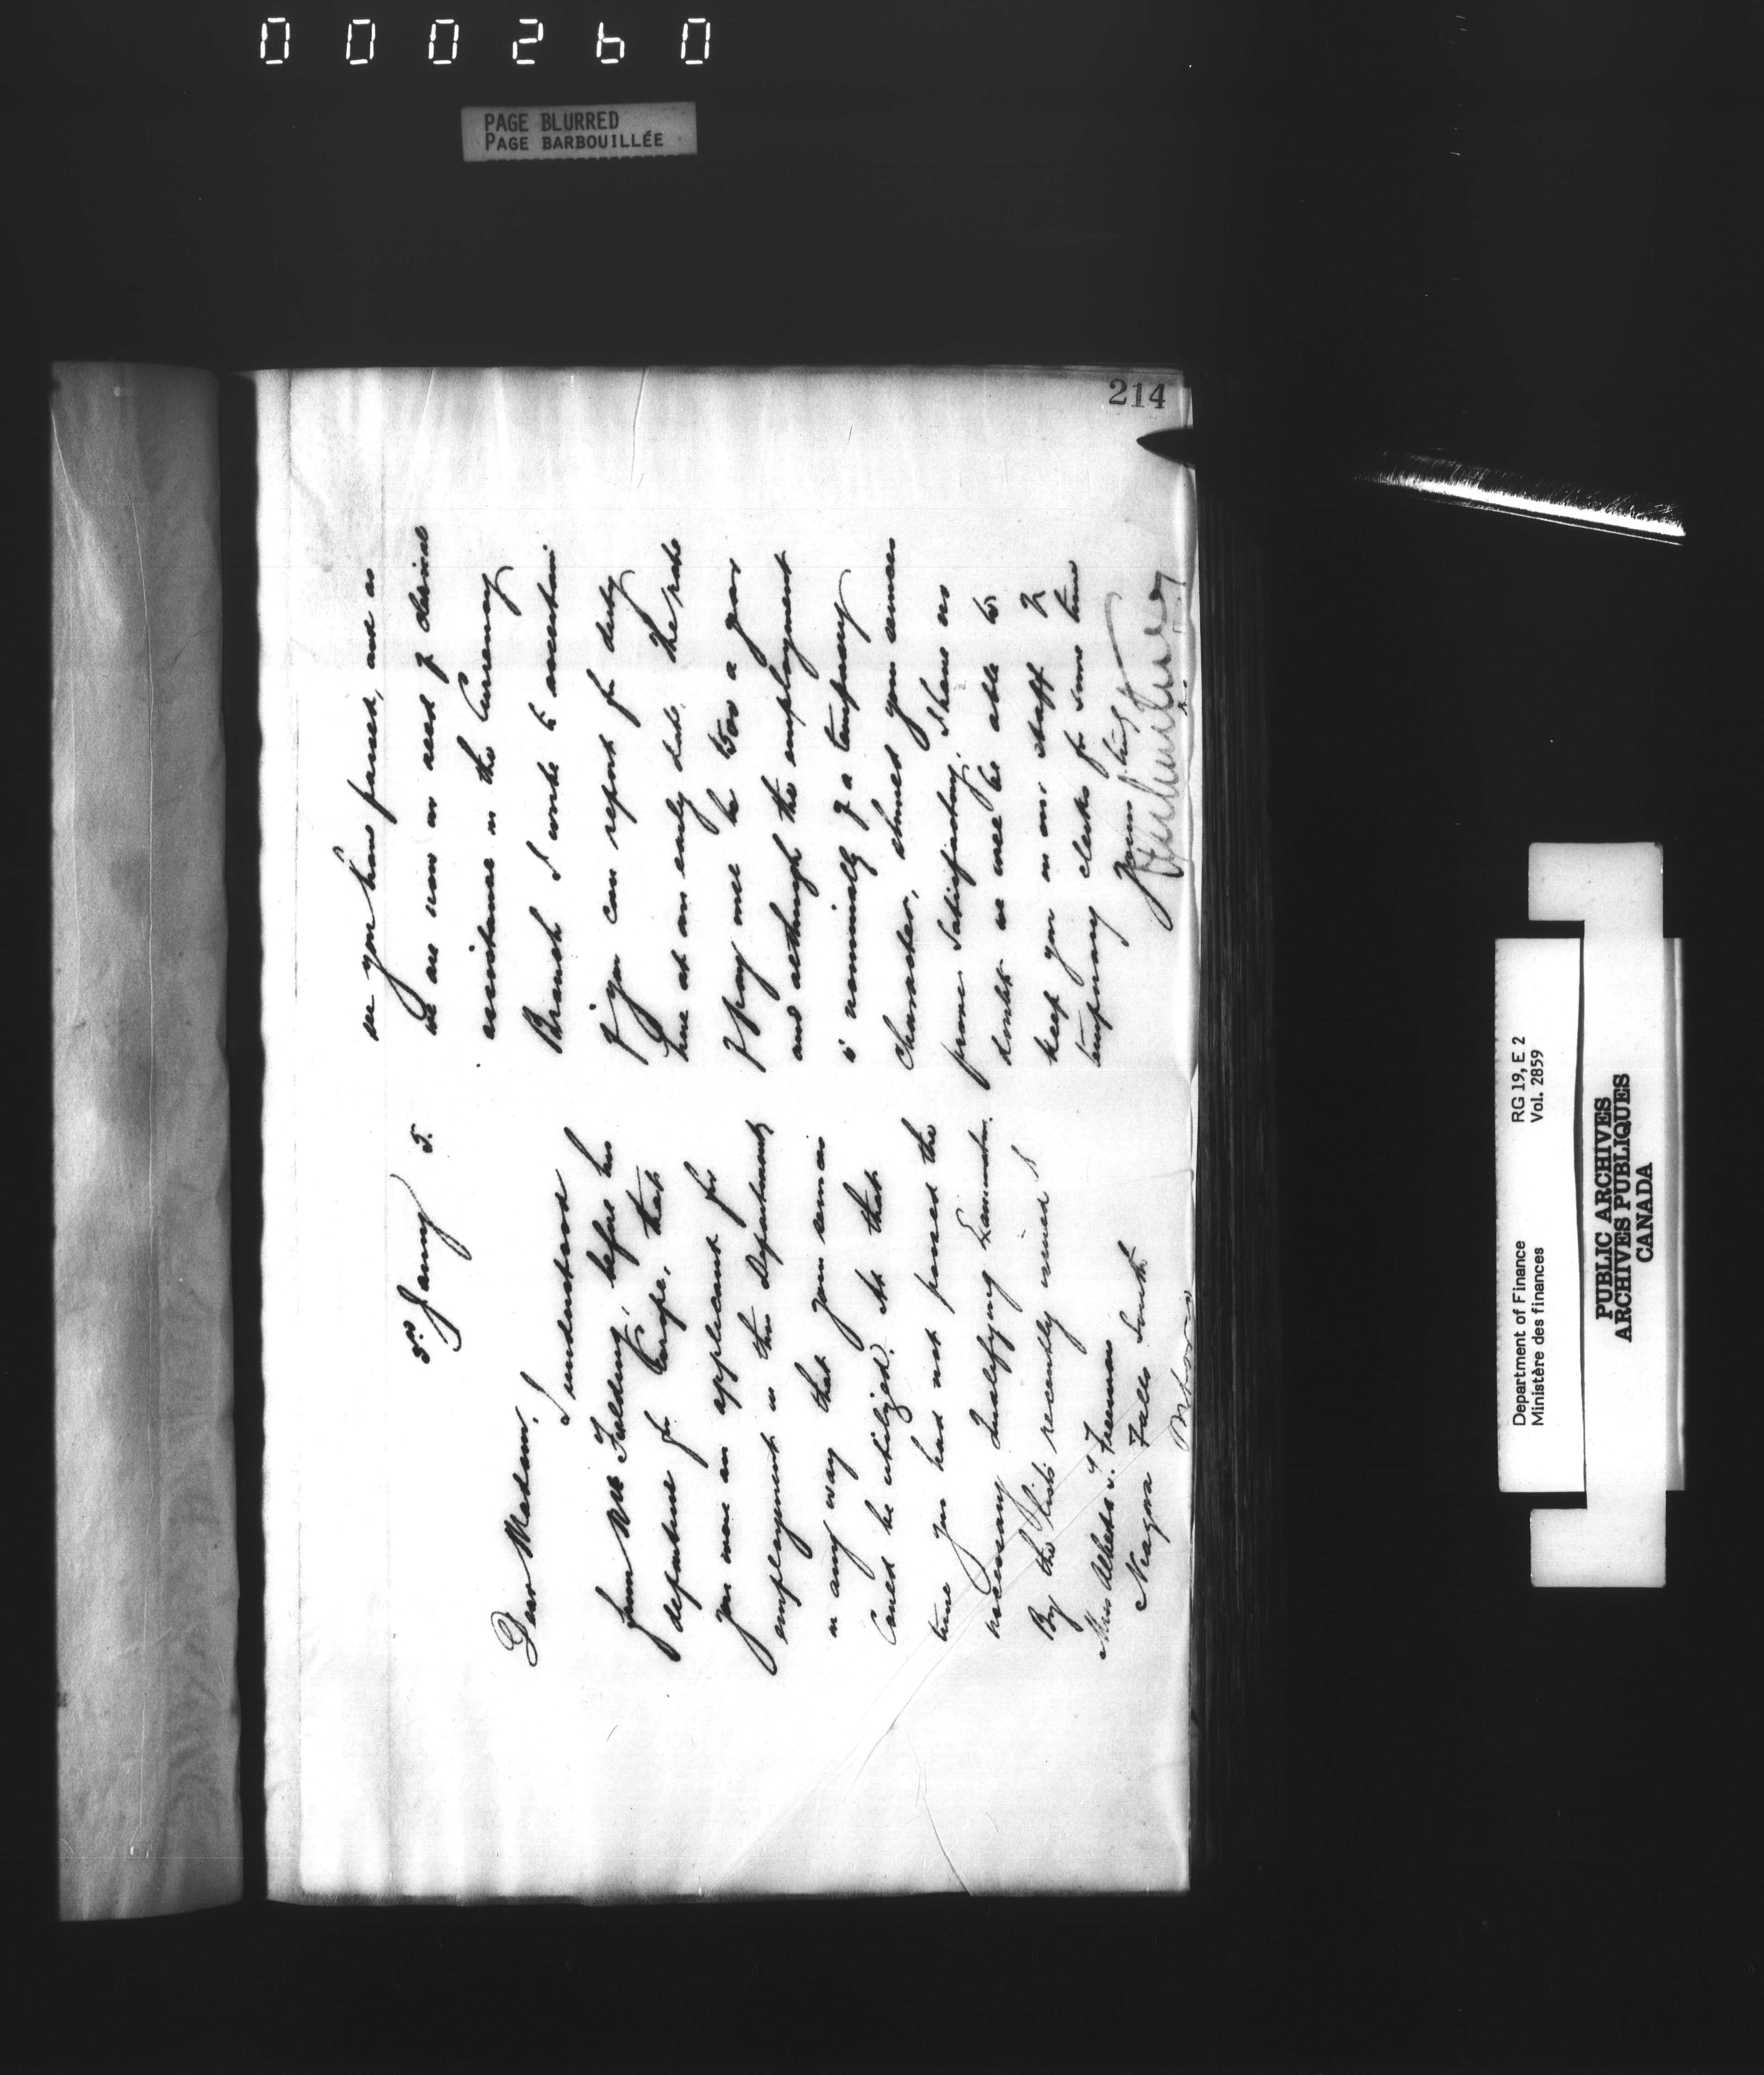 000260
PAGE BLURRED
PAGE BARBOUILLÉE
214
3rd Jany 5.
Dear Madam,
I understood
from Mr Fielding, before his
departure for Europe, that
you were an applicant for
employment in this Department
in any way that your services
could be utilized. At that
time you had not passed the
necessary Qualifying Examination.
By the lists recently issued I
Miss Alberta T. Freeman
Niagara Falls South
Ontario
see you have passed, and as
we are now in need of clerical
assistance in the Currency
Branch I write to ascertain
if you can report for duty
here at an early date. The rate
of pay will be $500 a year
and although the employment
is nominally of a temporary
character, should your services
prove satisfactory, I have no
doubt we will be able to
keep you on our staff of
temporary clerks for some time
Yours truly
Department of Finance
Ministère des finances
RG 19, E 2
Vol. 2859
PUBLIC ARCHIVES
ARCHIVES PUBLIQUES
CANADA